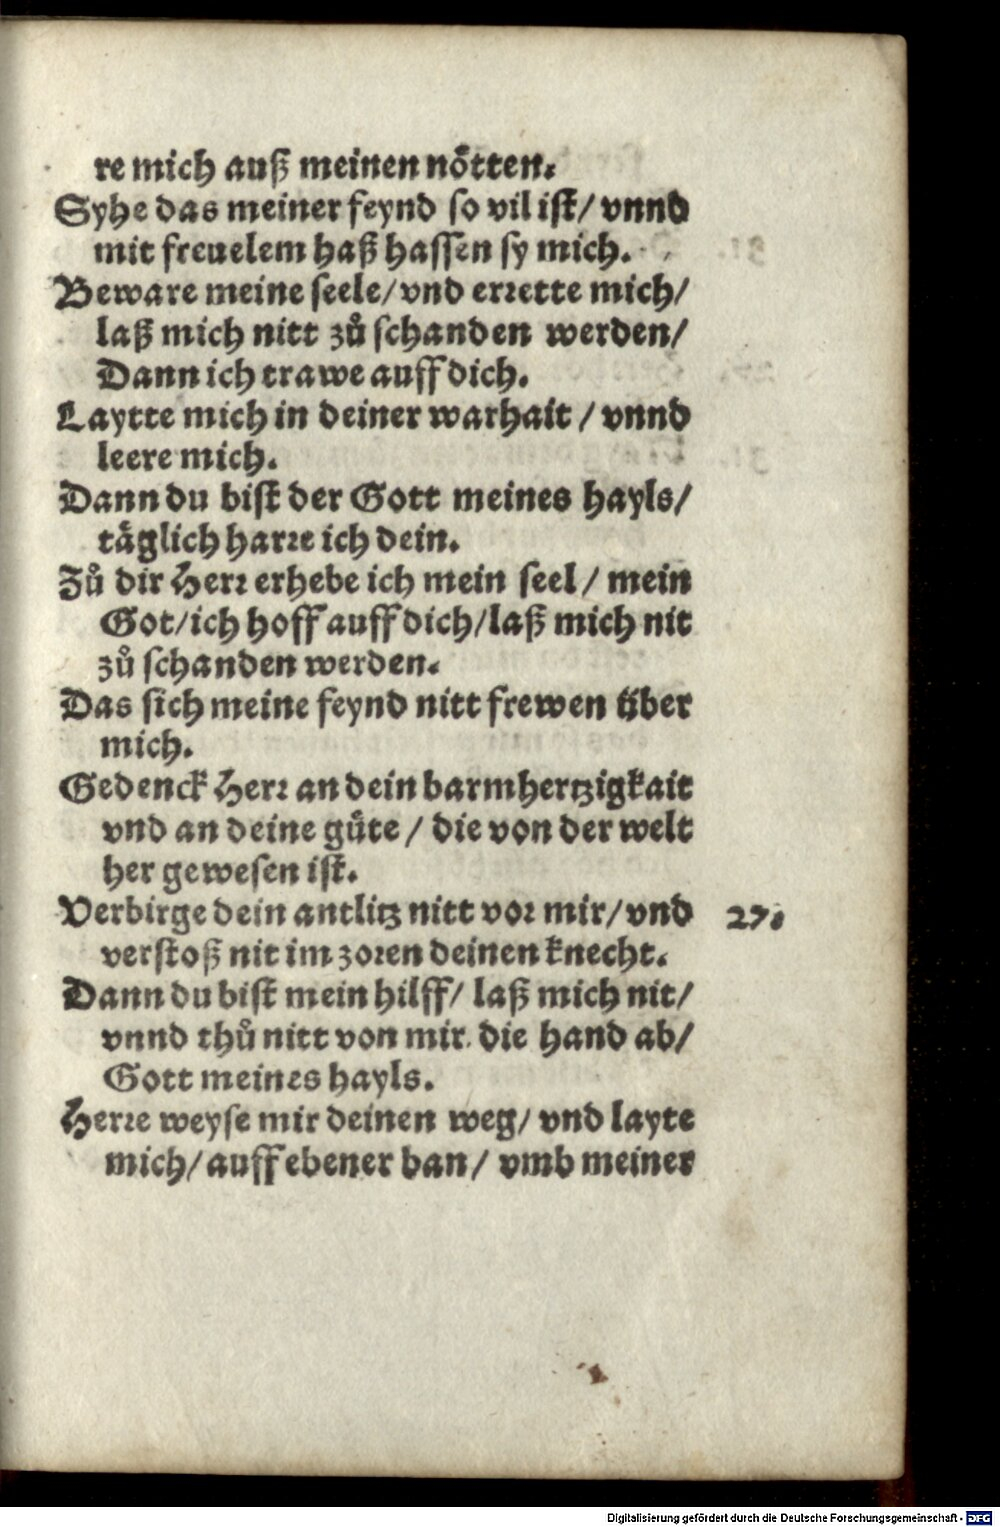 re mich auß meinen nötten.
Syhe das meiner feynd so vil ist/ vnnd
mit freuelem haß hassen sy mich.
Beware meine seele/ vnd errette mich/
laß mich nitt zů schanden werden/
Dann ich trawe auff dich.
Laytte mich in deiner warhait / vnnd
leere mich.
Dann du bist der Gott meines hayls/
täglich harre ich dein.
Zů dir Herr erhebe ich mein seel / mein
Got/ ich hoff auff dich/ laß mich nit
zů schanden werden.
Das sich meine feynd nitt frewen über
mich.
Gedenck Herr an dein barmhertzigkait
vnd an deine güte / die von der welt
her gewesen ist.
Verbirge dein antlitz nitt vor mir/ vnd 27.
verstoß nit im zoren deinen knecht.
Dann du bist mein hilff/ laß mich nit/
vnnd thů nitt von mir die hand ab/
Gott meines hayls.
Herre weyse mir deinen weg/ vnd layte
mich/ auff ebener ban/ vmb meiner
Digitalisierung gefördert durch die Deutsche Forschungsgemeinschaft - DFG